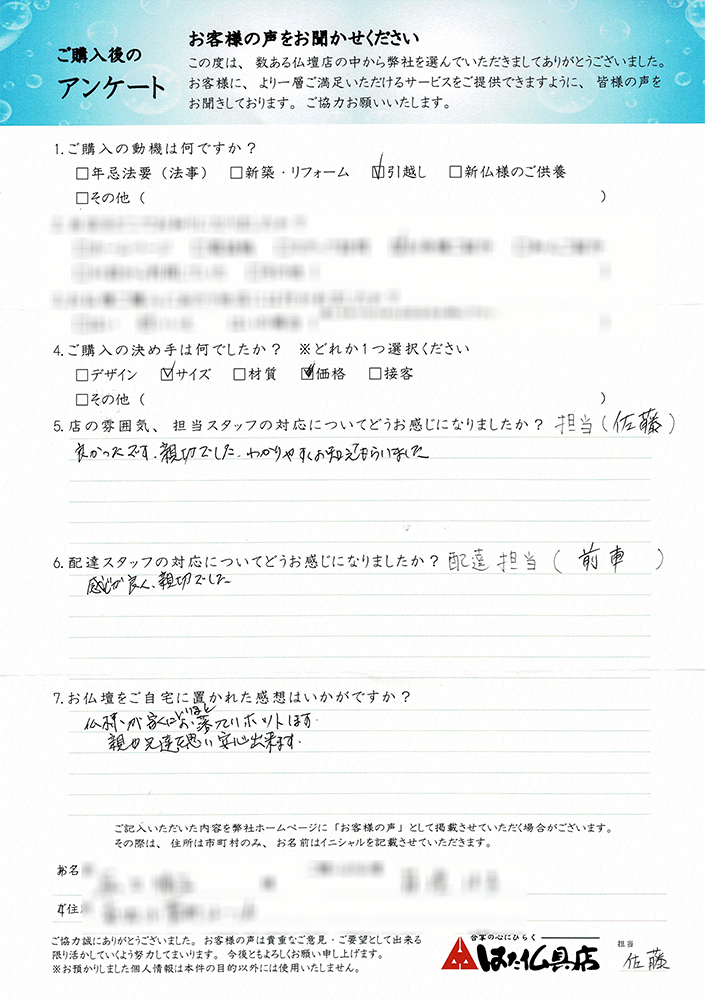 ご購入後の
アンケート
お客様の声をお聞かせください
この度は、数ある仏壇店の中から弊社を選んでいただきましてありがとうございました。
お客様に、より一層ご満足いただけるサービスをご提供できますように、皆様の声を
お聞きしております。ご協力お願いいたします。
1.ご購入の動機は何ですか？
□年忌法要（法事） □新築・リフォーム ☑引越し □新仏様のご供養
□その他（ ）
4.ご購入の決め手は何でしたか？ ※どれか1つ選択ください
□デザイン ☑サイズ □材質 ☑価格 □接客
□その他（ ）
5.店の雰囲気、担当スタッフの対応についてどうお感じになりましたか？ 担当（佐藤）
良かったです。親切でした。わかりやすくお知えもらいました
6.配達スタッフの対応についてどうお感じになりましたか？ 配達担当（前車）
感じが良く、親切でした
7.お仏壇をご自宅に置かれた感想はいかがですか？
仏様が家に 落 ホットします。
親や兄達を思い安心出来ます。
ご記入いただいた内容を弊社ホームページに「お客様の声」として掲載させていただく場合がございます。
その際は、住所は市町村のみ、お名前はイニシャルを記載させていただきます。
お名
ご住
ご協力誠にありがとうございました。お客様の声は貴重なご意見・ご要望として出来る
限り活かしていくよう努力してまいります。今後ともよろしくお願い申し上げます。
※お預かりしました個人情報は本件の目的以外には使用いたしません。
合掌の心にひらく
はた仏具店
担当
佐藤